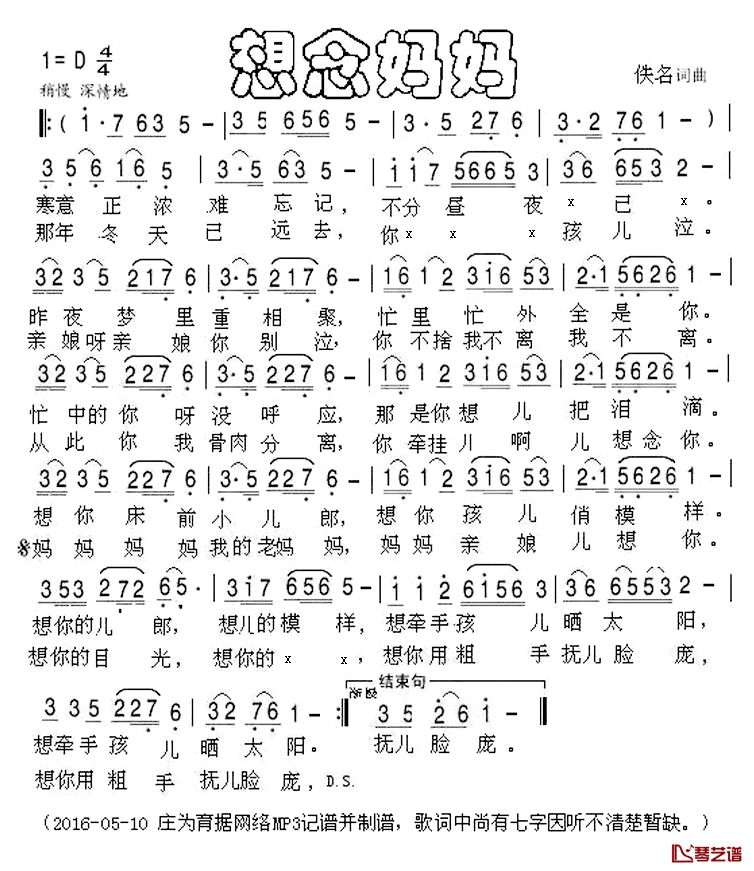 想念妈妈
1= D 4/4
稍慢 深情地
佚名词曲
‖:( i·7 63 5 – | 35 656 5 – | 3·5 27 6 | 3·2 76 1 – ) |
3 5 6 16 5 | 3·5 63 5 – | i i 7 5665 3 | 36 653 2 – |
寒意正浓难忘记，不分昼夜x已x。
那年冬天已远去，你x x x孩儿泣。
32 35 217 6 | 3·5 217 6 – | 16 12 316 53 | 2·1 5626 1 – |
昨夜梦里重相聚，忙里忙外全是你。
亲娘呀亲娘你别泣，你不捨我不离我不离。
32 35 227 6 | 3·5 227 6 – | 16 12 316 53 | 2·1 5626 1 – |
忙中的你呀没呼应，那是你想儿把泪滴。
从此你我骨肉分离，你牵挂儿啊儿想念你。
32 35 227 6 | 3·5 227 6 – | 16 12 316 53 | 2·1 5626 1 – |
想你床前小儿郎，想你孩儿俏模样。
妈妈妈妈我的老妈妈，妈妈亲娘儿想你。
353 272 65· | 3i7 656 5 – | i i 2 6156 3 | 36 6553 2 – |
想你的儿郎，想儿的模样，想牵手孩儿晒太阳，
想你的目光，想你的x x，想你用粗手抚儿脸庞，
结束句
渐慢
3 35 227 6 | 32 76 1 – :‖ 35 26 i – ‖
想牵手孩儿晒太阳。抚儿脸庞。
想你用粗手抚儿脸庞，D.S.
（2016-05-10 庄为育据网络MP3记谱并制谱，歌词中尚有七字因听不清楚暂缺。）
琴艺谱